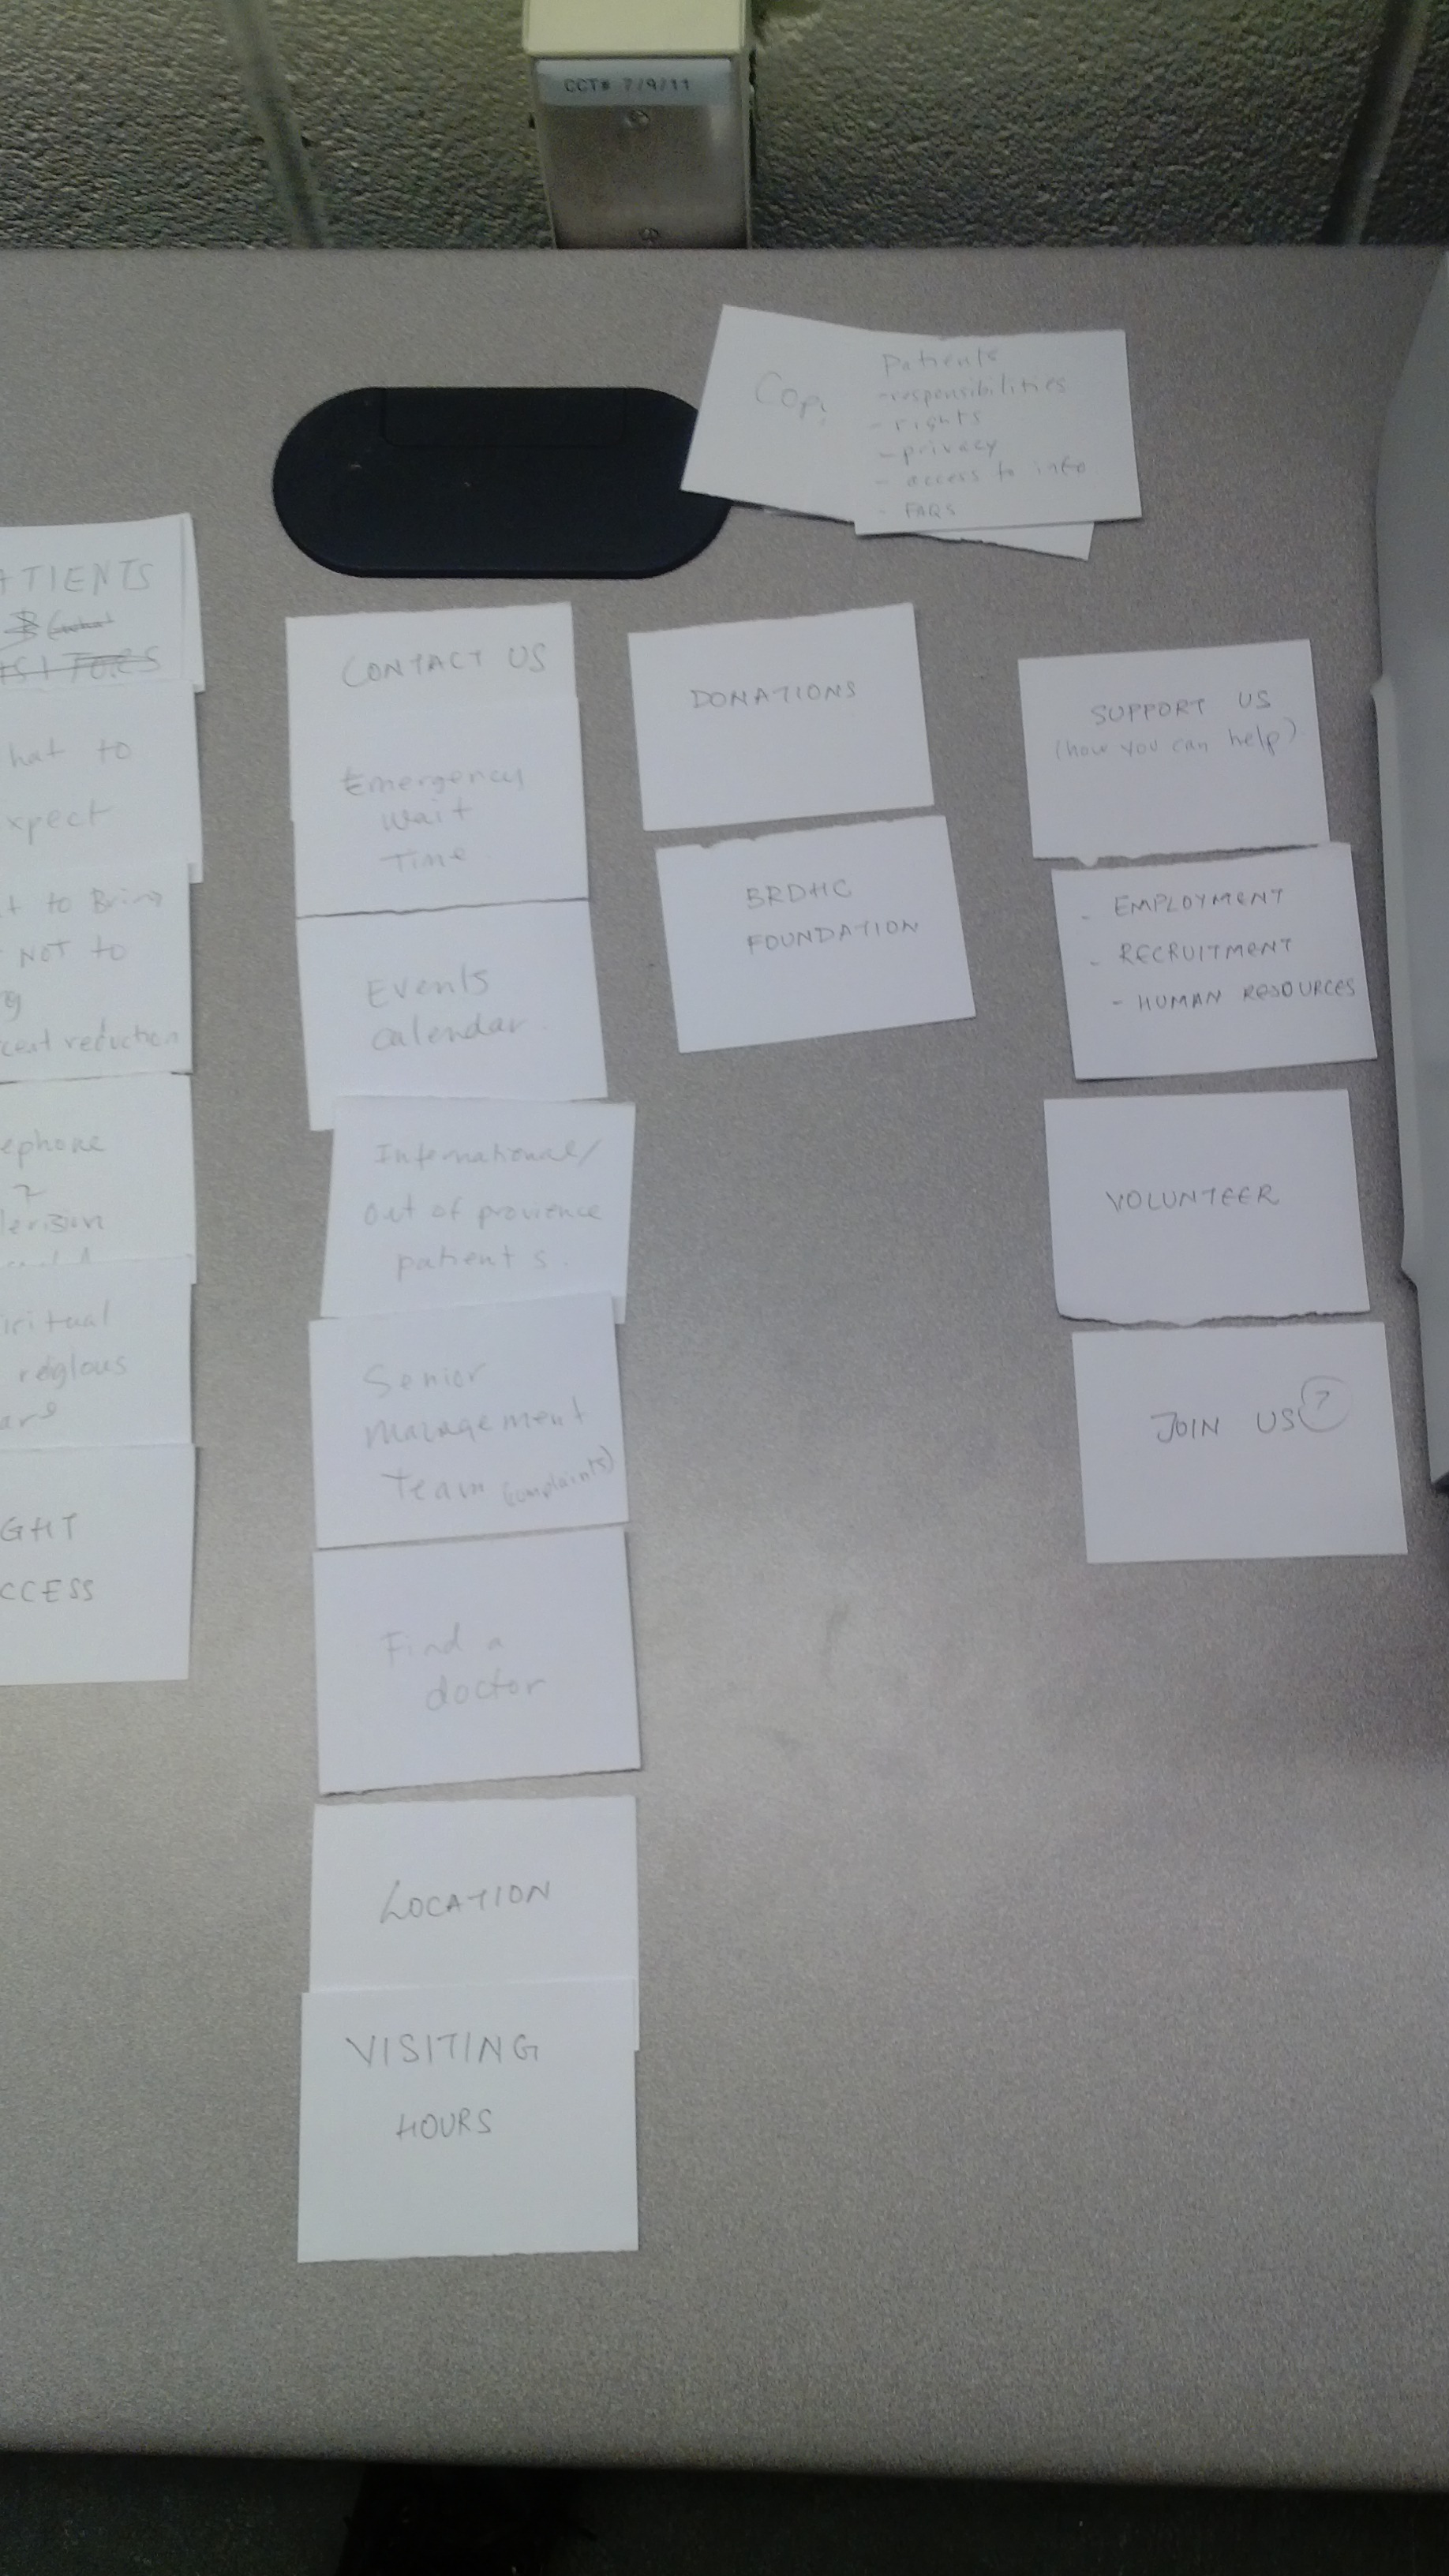 CCT# 7/9/11
Cop
Patients
-responsibilities
- rights
- privacy
- access to info
- FAQS
ATIENTS
hat to
xpect
t to Bring
NOT to
g
reduction
ephone
iritual
reglous
are
GHT
CCESS
CONTACT US
Emergency
Wait
Time.
Events
Calendar.
International/
Out of provience
patients.
Senior
Management
Team (complaints)
Find a
doctor
LOCATION
VISITING
HOURS
DONATIONS
BRDHC
FOUNDATION
SUPPORT US
(how you can help)
- EMPLOYMENT
- RECRUITMENT
- HUMAN RESOURCES
VOLUNTEER
JOIN US ?